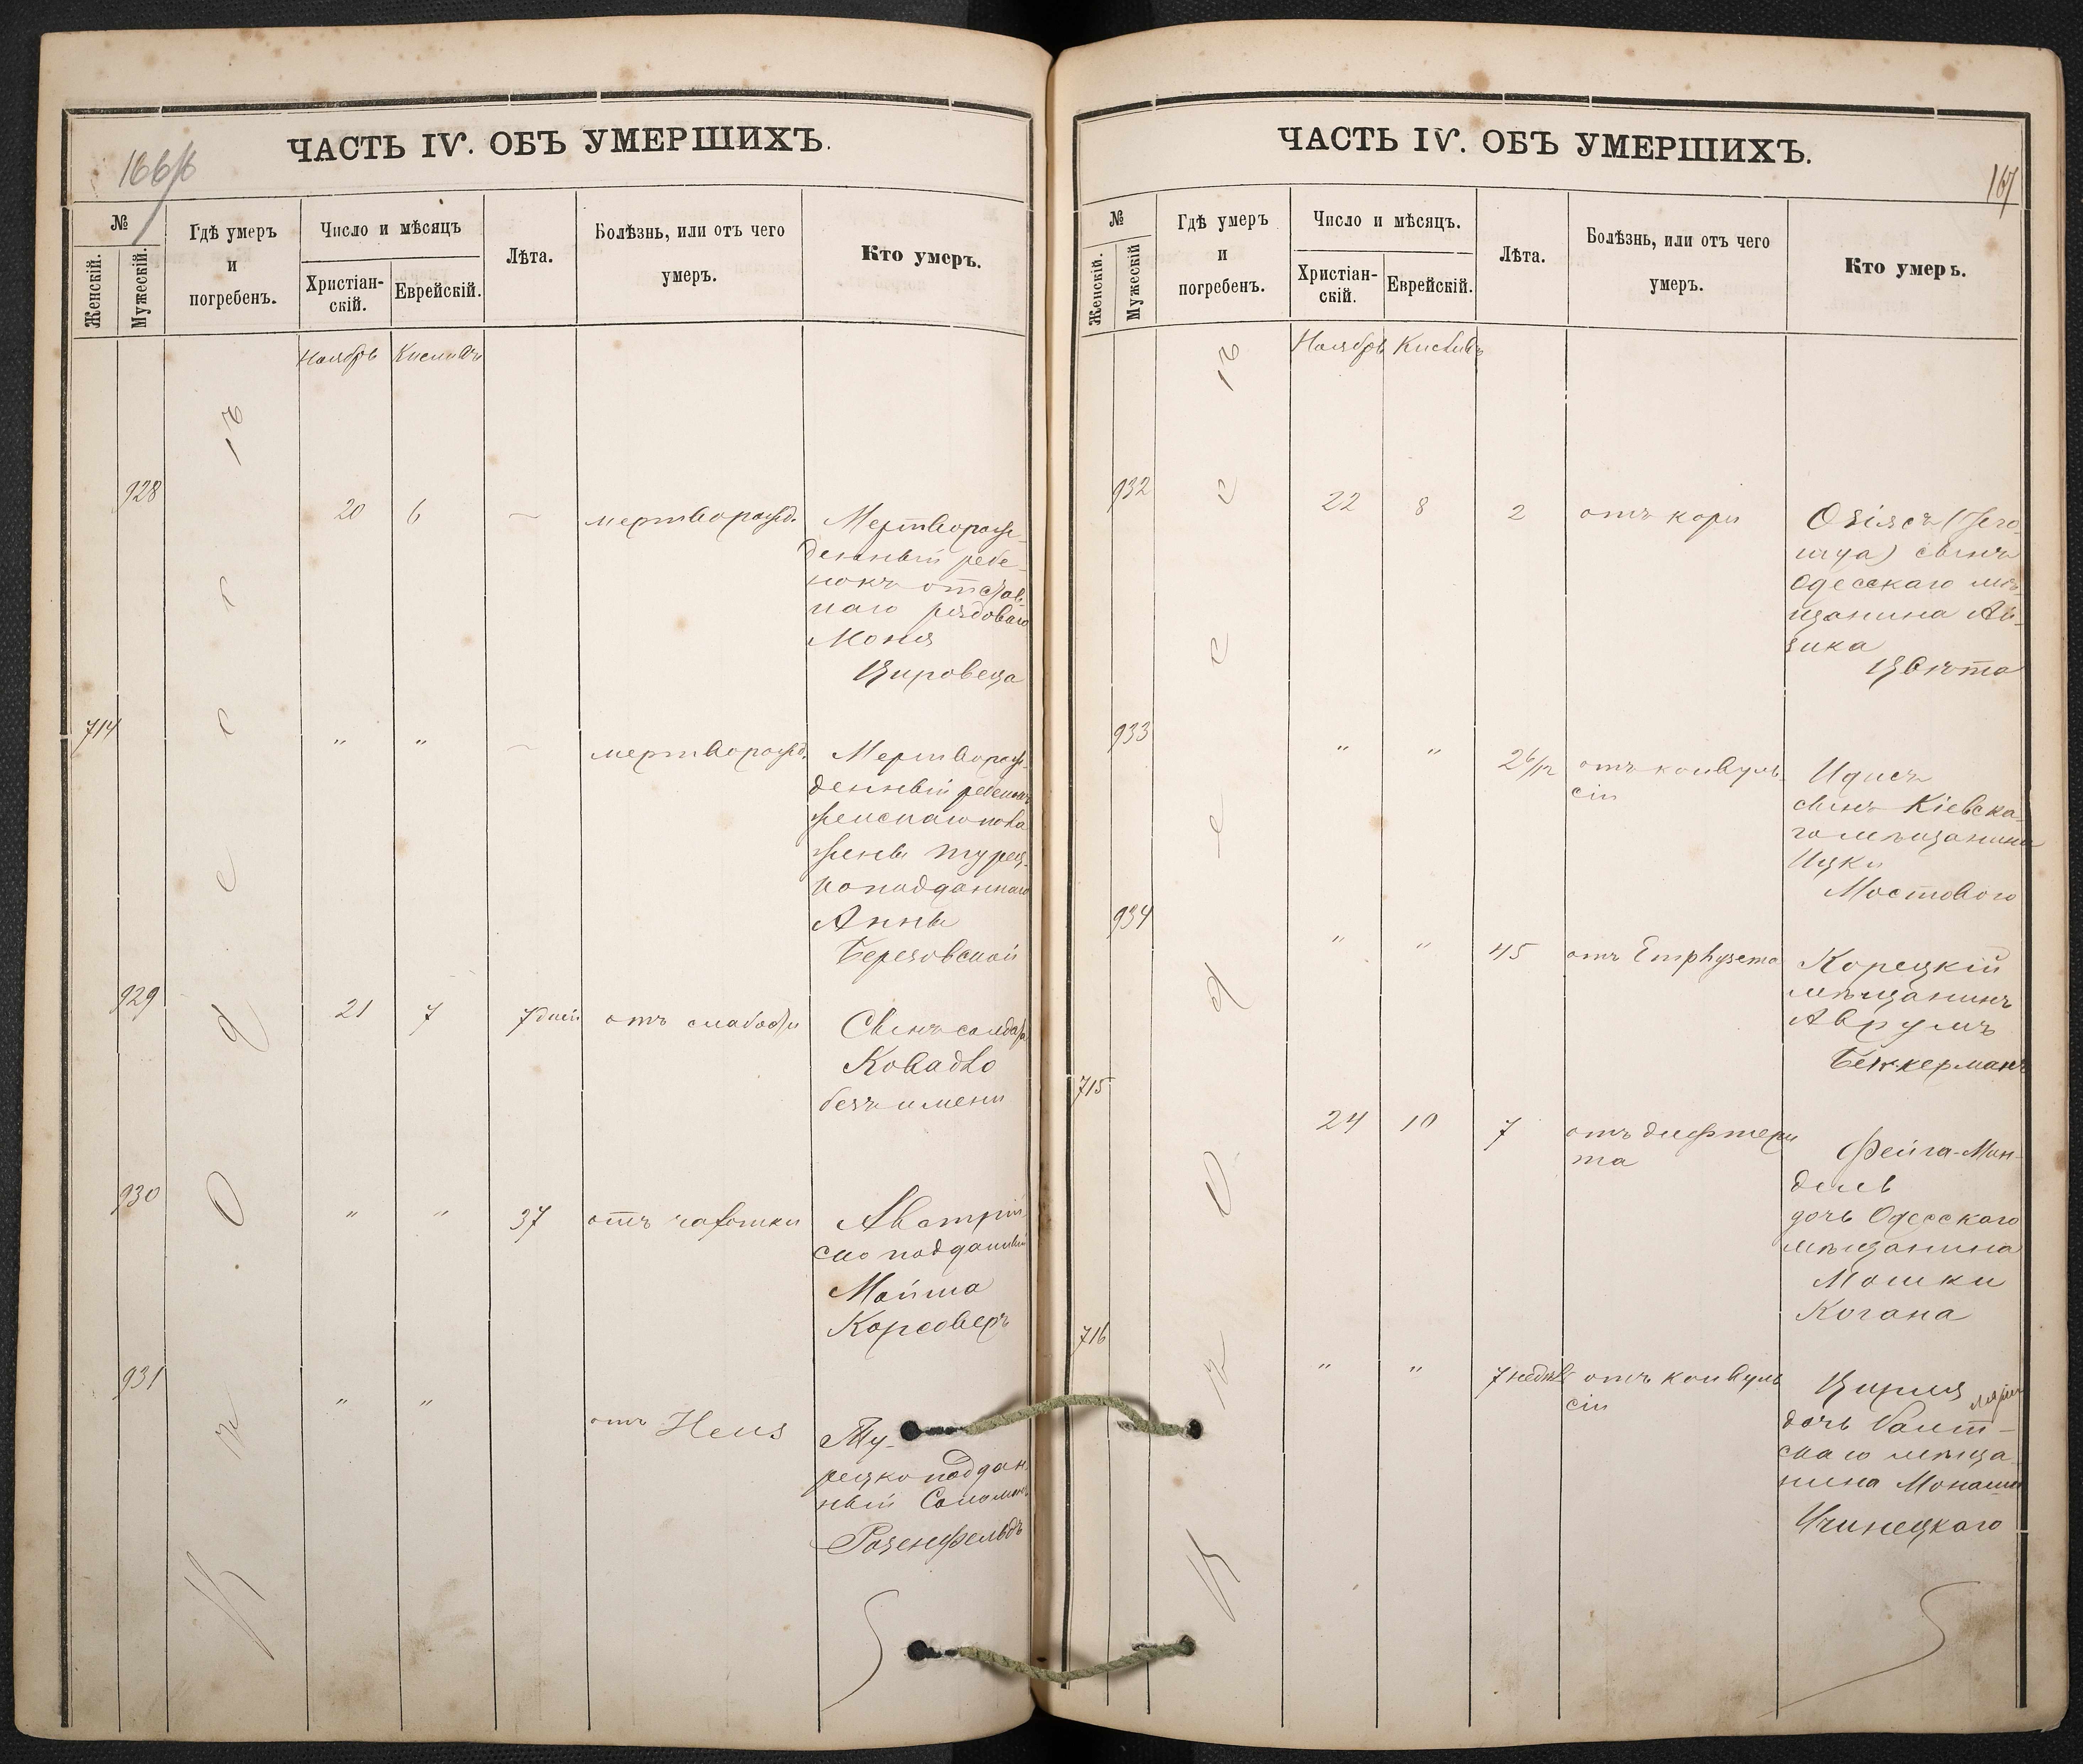 ЧАСТЬ IV. ОБЪ УМЕРШИХЪ.
166
№
Женскій.
Мужескій.
Гдѣ умеръ
и
погребенъ.
Число и мѣсяцъ
Христіан-
скій.
Еврейскій.
Лѣта.
Болѣзнь, или отъ чего
умеръ.
Кто умеръ.
Ноябрь Кислевъ
Въ Одессѣ
928 20 6 — мертворожд.
Мертворож-
денный ребе-
нокъ отстав-
наго рядового
Моня
Цировеца
714 " " — мертворожд.
Мертворож-
денный ребенокъ
женскаго пола
жены турец-
коподданнаго
Анны
Березовской
929 21 7 7 дней отъ слабости
Сынъ солдата
Ковадло
безъ имени
930 " " 37 отъ чахотки
Австрій
ско подданный
Мойша
Корсоверъ
931 " " отъ Ileus
Ту-
рецкоподдан
ный Соломонъ
Розенфельдъ
ЧАСТЬ IV. ОБЪ УМЕРШИХЪ.
167
№
Женскій.
Мужескій
Гдѣ умеръ
и
погребенъ.
Число и мѣсяцъ.
Христіан-
скій.
Еврейскій.
Лѣта.
Болѣзнь, или отъ чего
умеръ.
Кто умеръ.
Ноябрь Кислевъ
Въ Одессѣ
932 22 8 2 отъ кори
сынъ
Одесскаго мѣ-
щанина Ай-
зика
Цвѣта
933 " " 2 6/12 отъ конвуль-
сіи
Идисъ
сынъ Кіевска-
го мѣщанина
Ицки
Мостового
934 " " 45 отъ Emphysema
Корецкій
мѣщанинъ
Аврумъ
Беккерманъ
715 24 10 7 отъ дифтери
та
Фейга-Мин-
дель
дочь Одесскаго
мѣщанина
Мошки
Когана
716 " " 7 недѣль отъ конвуль
сіи
Цирля
дочь Балт-
скаго мѣща-
нина Монаша
Ичинецкаго